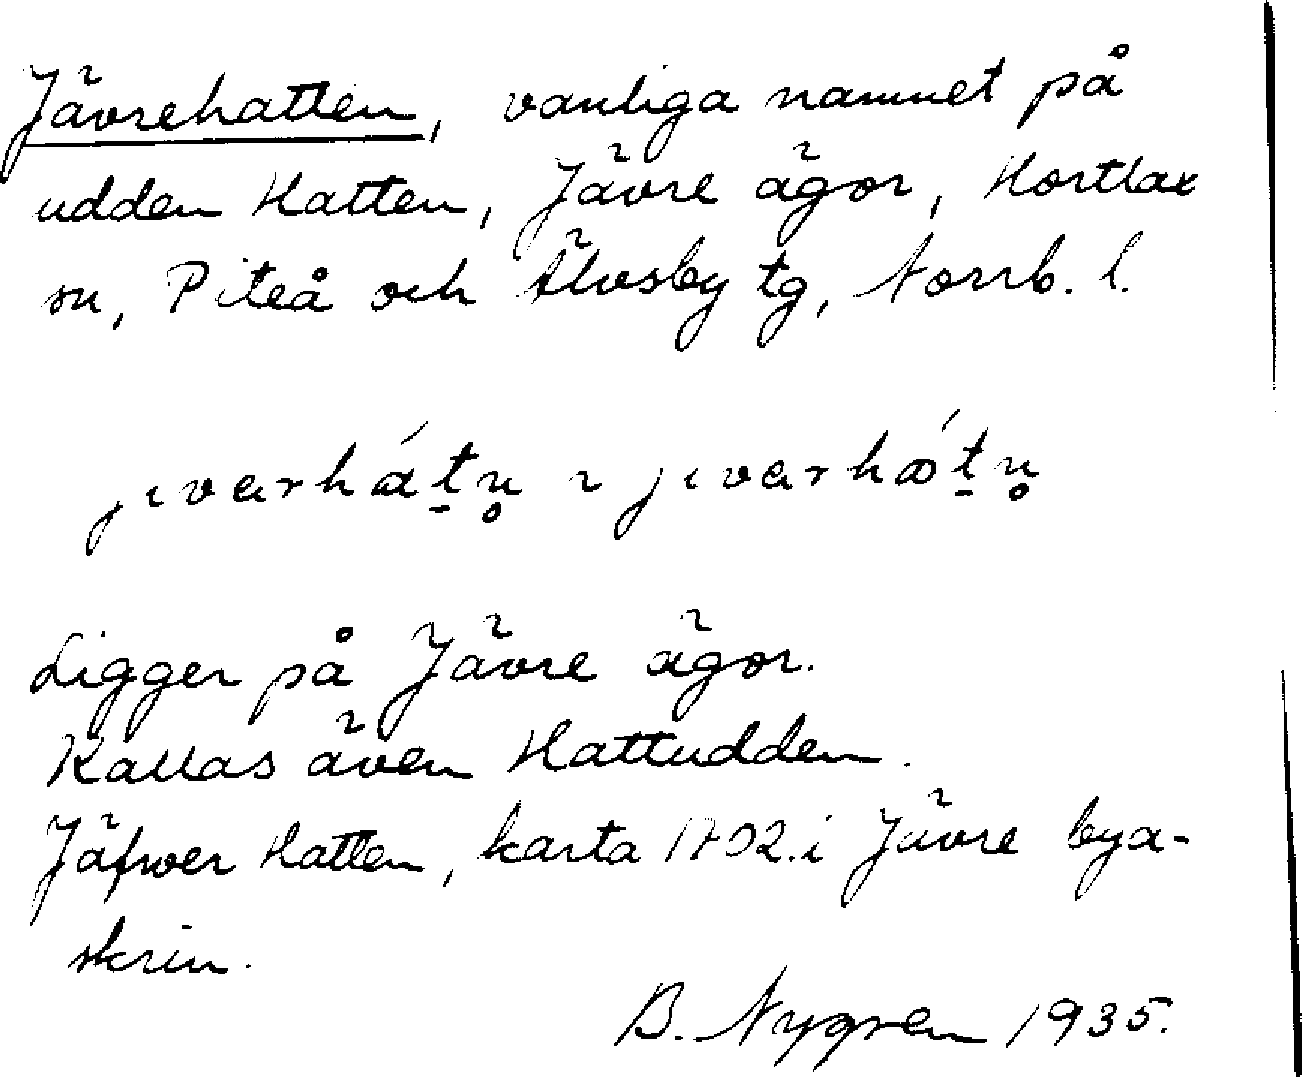 Jävrehatten, vanliga namnet på
udden Hatten, Jävre ägor, Hortlax
sn, Piteå och Älvsby tg, Norrb. l.
Ligger på Jävre ägor.
Kallas även Hattudden.
Jäfwer Hatten, karta i Jävre bya-
skrin.
B. Nygren 1935.